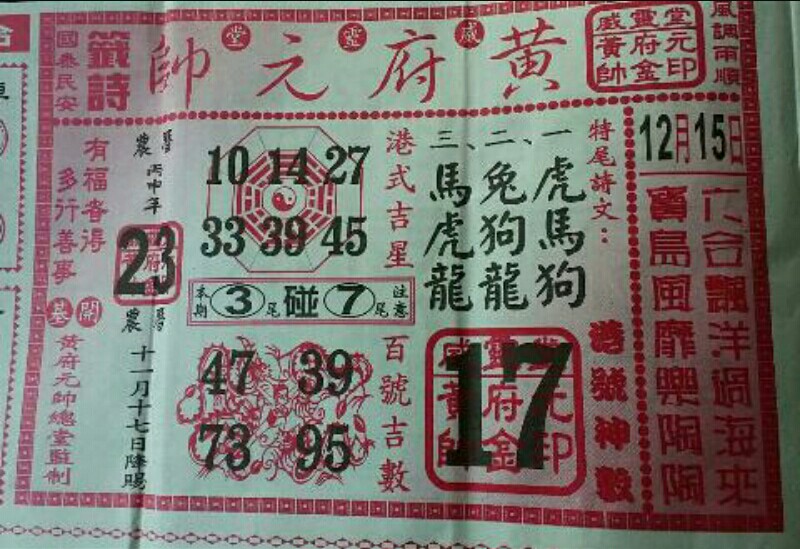 風調雨順
國泰民安
籤詩
黃府元帥
威靈堂
威靈堂
黃府元
帥金印
12月15日
六合飄洋過海來
寶島風靡樂陶陶
特尾詩文：
一、虎馬狗
二、兔狗龍
三、馬虎龍
港號神數
17
威靈堂
黃府元
帥金印
港式吉星
10 14 27
33 39 45
本期 3尾 碰 7尾 注意
百號吉數
47 39
73 95
農曆
丙申年
23
農曆
十一月十七日降賜
有福者得
多行善事
開基
黃府元帥總堂監制